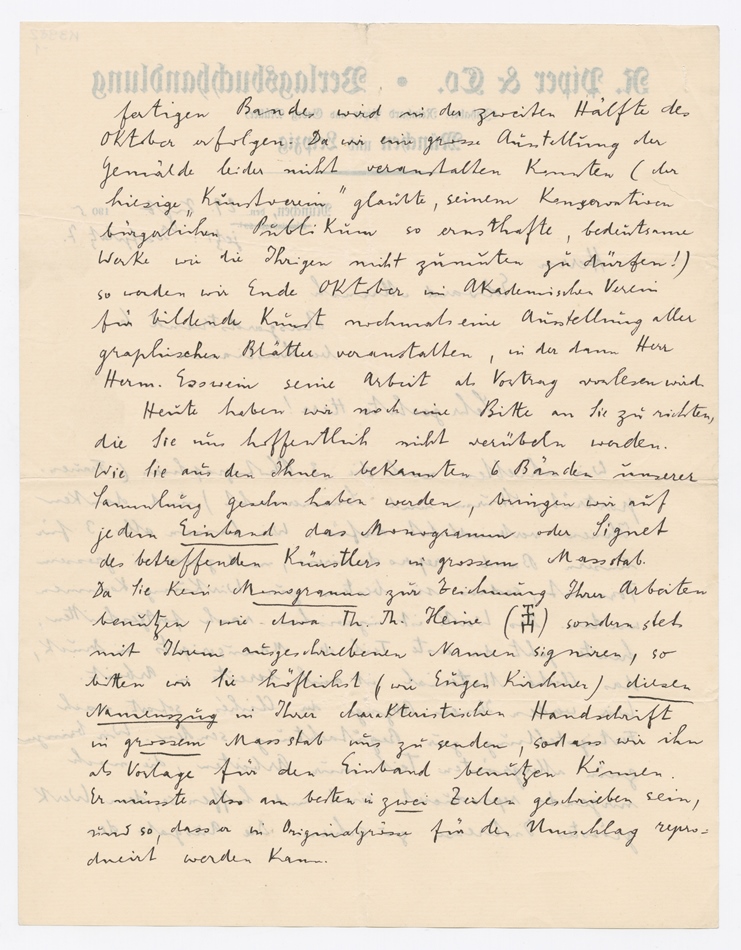 fertigen Bandes wird in der zweiten Hälfte des
Oktober erfolgen. Da wir eine grosse Ausstellung der
Gemälde leider nicht veranstalten konnten (der
hiesige „Kunstverein" glaubte, seinem konservativen
bürgerlichen Publikum so ernsthafte, bedeutsame
Werke wie die Ihrigen nicht zumuten zu dürfen!)
so werden wir Ende Oktober im Akademischen Verein
für bildende Kunst nochmals eine Ausstellung aller
graphischen Blätter veranstalten, in der dann Herr
Herm. Esswein seine Arbeit als Vortrag vorlesen wird.
Heute haben wir noch eine Bitte an Sie zu richten,
die Sie uns hoffentlich nicht verübeln werden.
Wie Sie aus den Ihnen bekannten 6 Bänden unserer
Sammlung gesehn haben werden, bringen wir auf
jedem Einband das Monogramm oder Signet
des betreffenden Künstlers in grossem Massstab.
Da Sie kein Monogramm zur Zeichnung Ihrer Arbeiten
benutzen, wie etwa Th. Th. Heine ( ) sondern stets
mit Ihrem ausgeschriebenen Namen signiren, so
bitten wir Sie höflichst (wie Eugen Kirchner) diesen
Namenszug in Ihrer charakteristischen Handschrift
in grossem Massstab uns zu senden, sodass wir ihn
als Vorlage für den Einband benutzen können.
Er müsste also am besten in zwei Zeilen geschrieben sein,
und so, dass er in Originalgrösse für den Umschlag repro=
duzirt werden kann.
R. Piper & Co. • Verlagsbuchhandlung
München und Leipzig
München, den